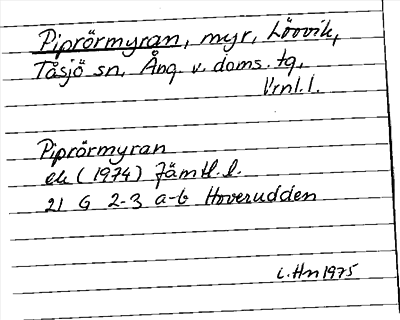 Piprörmyran, myr, Lövvik,
Tåsjö sn, Ång. v. doms. tg,
Vrnl. l.
Piprörmyran
ek (1974) Jämtl. l.
21 G 2-3 a-b Hoverudden
L. Hn 1975